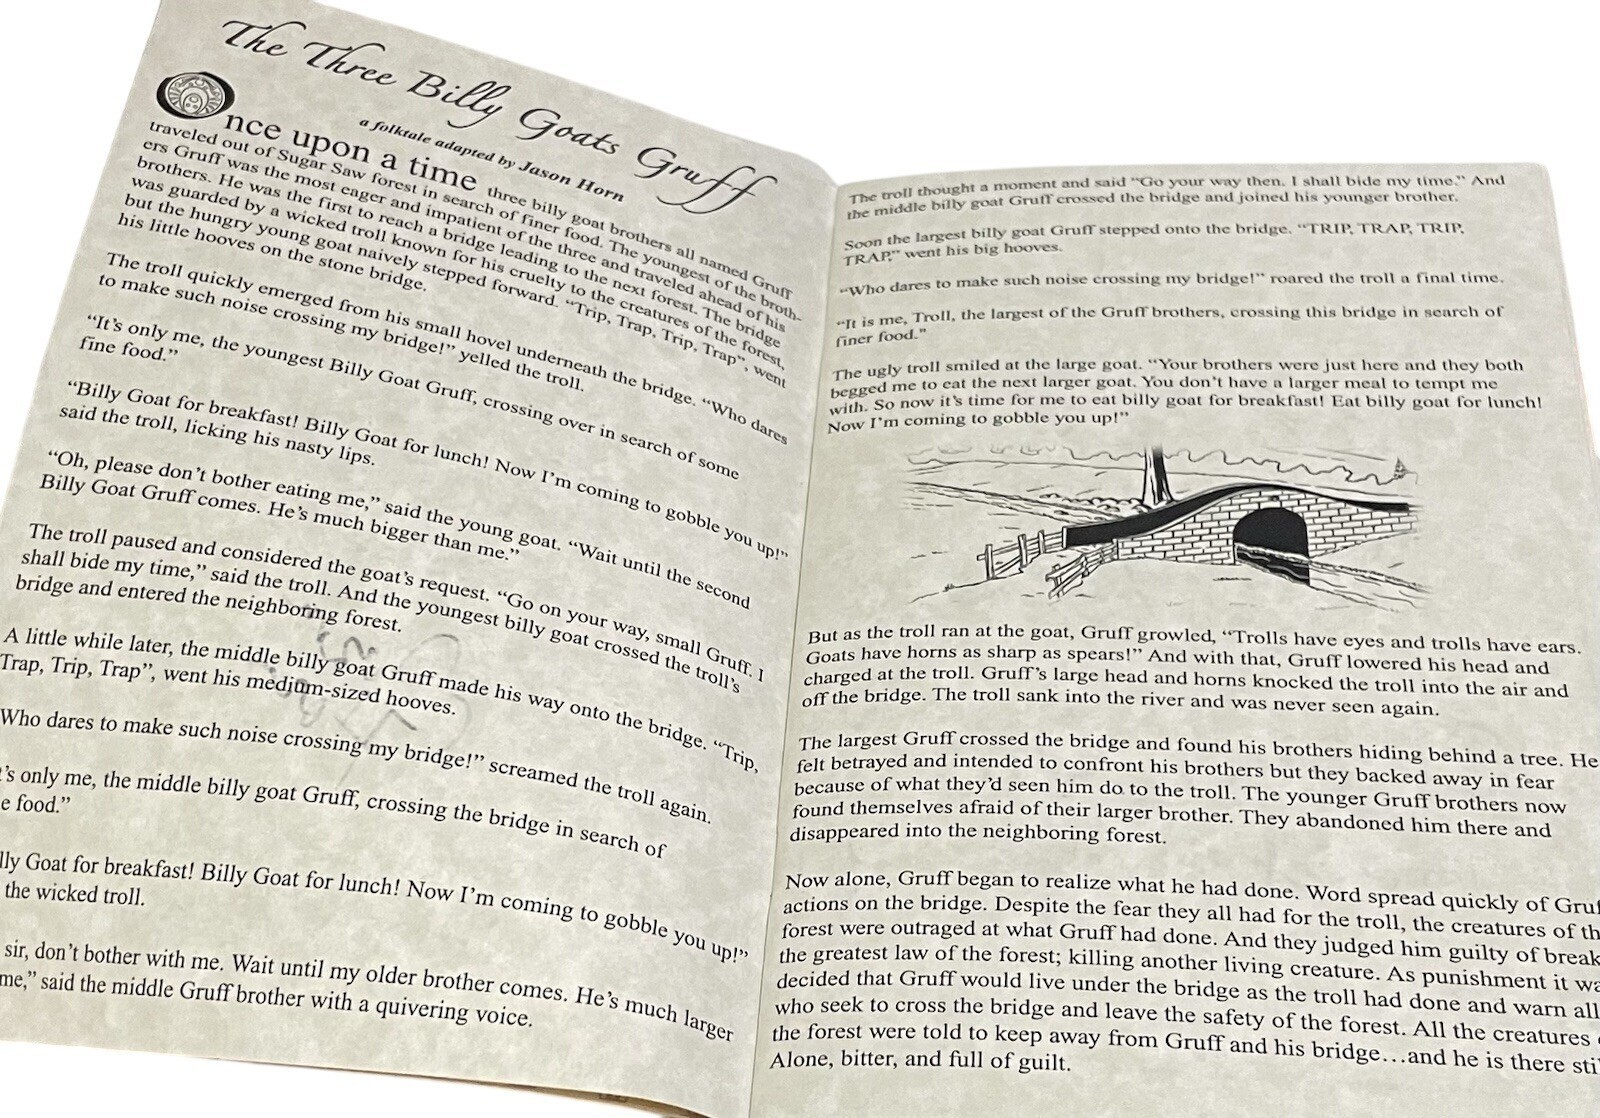 The Three Billy Goats Gruff
a folktale adapted by Jason Horn
Once upon a time three billy goat brothers all named Gruff
traveled out of Sugar Saw forest in search of finer food. The youngest of the broth-
ers Gruff was the most eager and impatient of the three and traveled ahead of his
brothers. He was the first to reach a bridge leading to the next forest. The bridge
was guarded by a wicked troll known for his cruelty to the creatures of the forest,
but the hungry young goat naively stepped forward. “Trip, Trap, Trip, Trap”, went
his little hooves on the stone bridge.
The troll quickly emerged from his small hovel underneath the bridge. “Who dares
to make such noise crossing my bridge!” yelled the troll.
“It’s only me, the youngest Billy Goat Gruff, crossing over in search of some
fine food.”
“Billy Goat for breakfast! Billy Goat for lunch! Now I’m coming to gobble you up!”
said the troll, licking his nasty lips.
“Oh, please don’t bother eating me,” said the young goat. “Wait until the second
Billy Goat Gruff comes. He’s much bigger than me.”
The troll paused and considered the goat’s request. “Go on your way, small Gruff. I
shall bide my time,” said the troll. And the youngest billy goat crossed the troll’s
bridge and entered the neighboring forest.
A little while later, the middle billy goat Gruff made his way onto the bridge. “Trip,
Trap, Trip, Trap”, went his medium-sized hooves.
Who dares to make such noise crossing my bridge!” screamed the troll again.
’s only me, the middle billy goat Gruff, crossing the bridge in search of
e food.”
lly Goat for breakfast! Billy Goat for lunch! Now I’m coming to gobble you up!”
the wicked troll.
sir, don’t bother with me. Wait until my older brother comes. He’s much larger
me,” said the middle Gruff brother with a quivering voice.
The troll thought a moment and said “Go your way then. I shall bide my time.” And
the middle billy goat Gruff crossed the bridge and joined his younger brother.
Soon the largest billy goat Gruff stepped onto the bridge. “TRIP, TRAP, TRIP,
TRAP,” went his big hooves.
“Who dares to make such noise crossing my bridge!” roared the troll a final time.
“It is me, Troll, the largest of the Gruff brothers, crossing this bridge in search of
finer food.”
The ugly troll smiled at the large goat. “Your brothers were just here and they both
begged me to eat the next larger goat. You don’t have a larger meal to tempt me
with. So now it’s time for me to eat billy goat for breakfast! Eat billy goat for lunch!
Now I’m coming to gobble you up!”
But as the troll ran at the goat, Gruff growled, “Trolls have eyes and trolls have ears.
Goats have horns as sharp as spears!” And with that, Gruff lowered his head and
charged at the troll. Gruff’s large head and horns knocked the troll into the air and
off the bridge. The troll sank into the river and was never seen again.
The largest Gruff crossed the bridge and found his brothers hiding behind a tree. He
felt betrayed and intended to confront his brothers but they backed away in fear
because of what they’d seen him do to the troll. The younger Gruff brothers now
found themselves afraid of their larger brother. They abandoned him there and
disappeared into the neighboring forest.
Now alone, Gruff began to realize what he had done. Word spread quickly of Gruf
actions on the bridge. Despite the fear they all had for the troll, the creatures of th
forest were outraged at what Gruff had done. And they judged him guilty of break
the greatest law of the forest; killing another living creature. As punishment it wa
decided that Gruff would live under the bridge as the troll had done and warn all
who seek to cross the bridge and leave the safety of the forest. All the creatures
the forest were told to keep away from Gruff and his bridge...and he is there sti
Alone, bitter, and full of guilt.